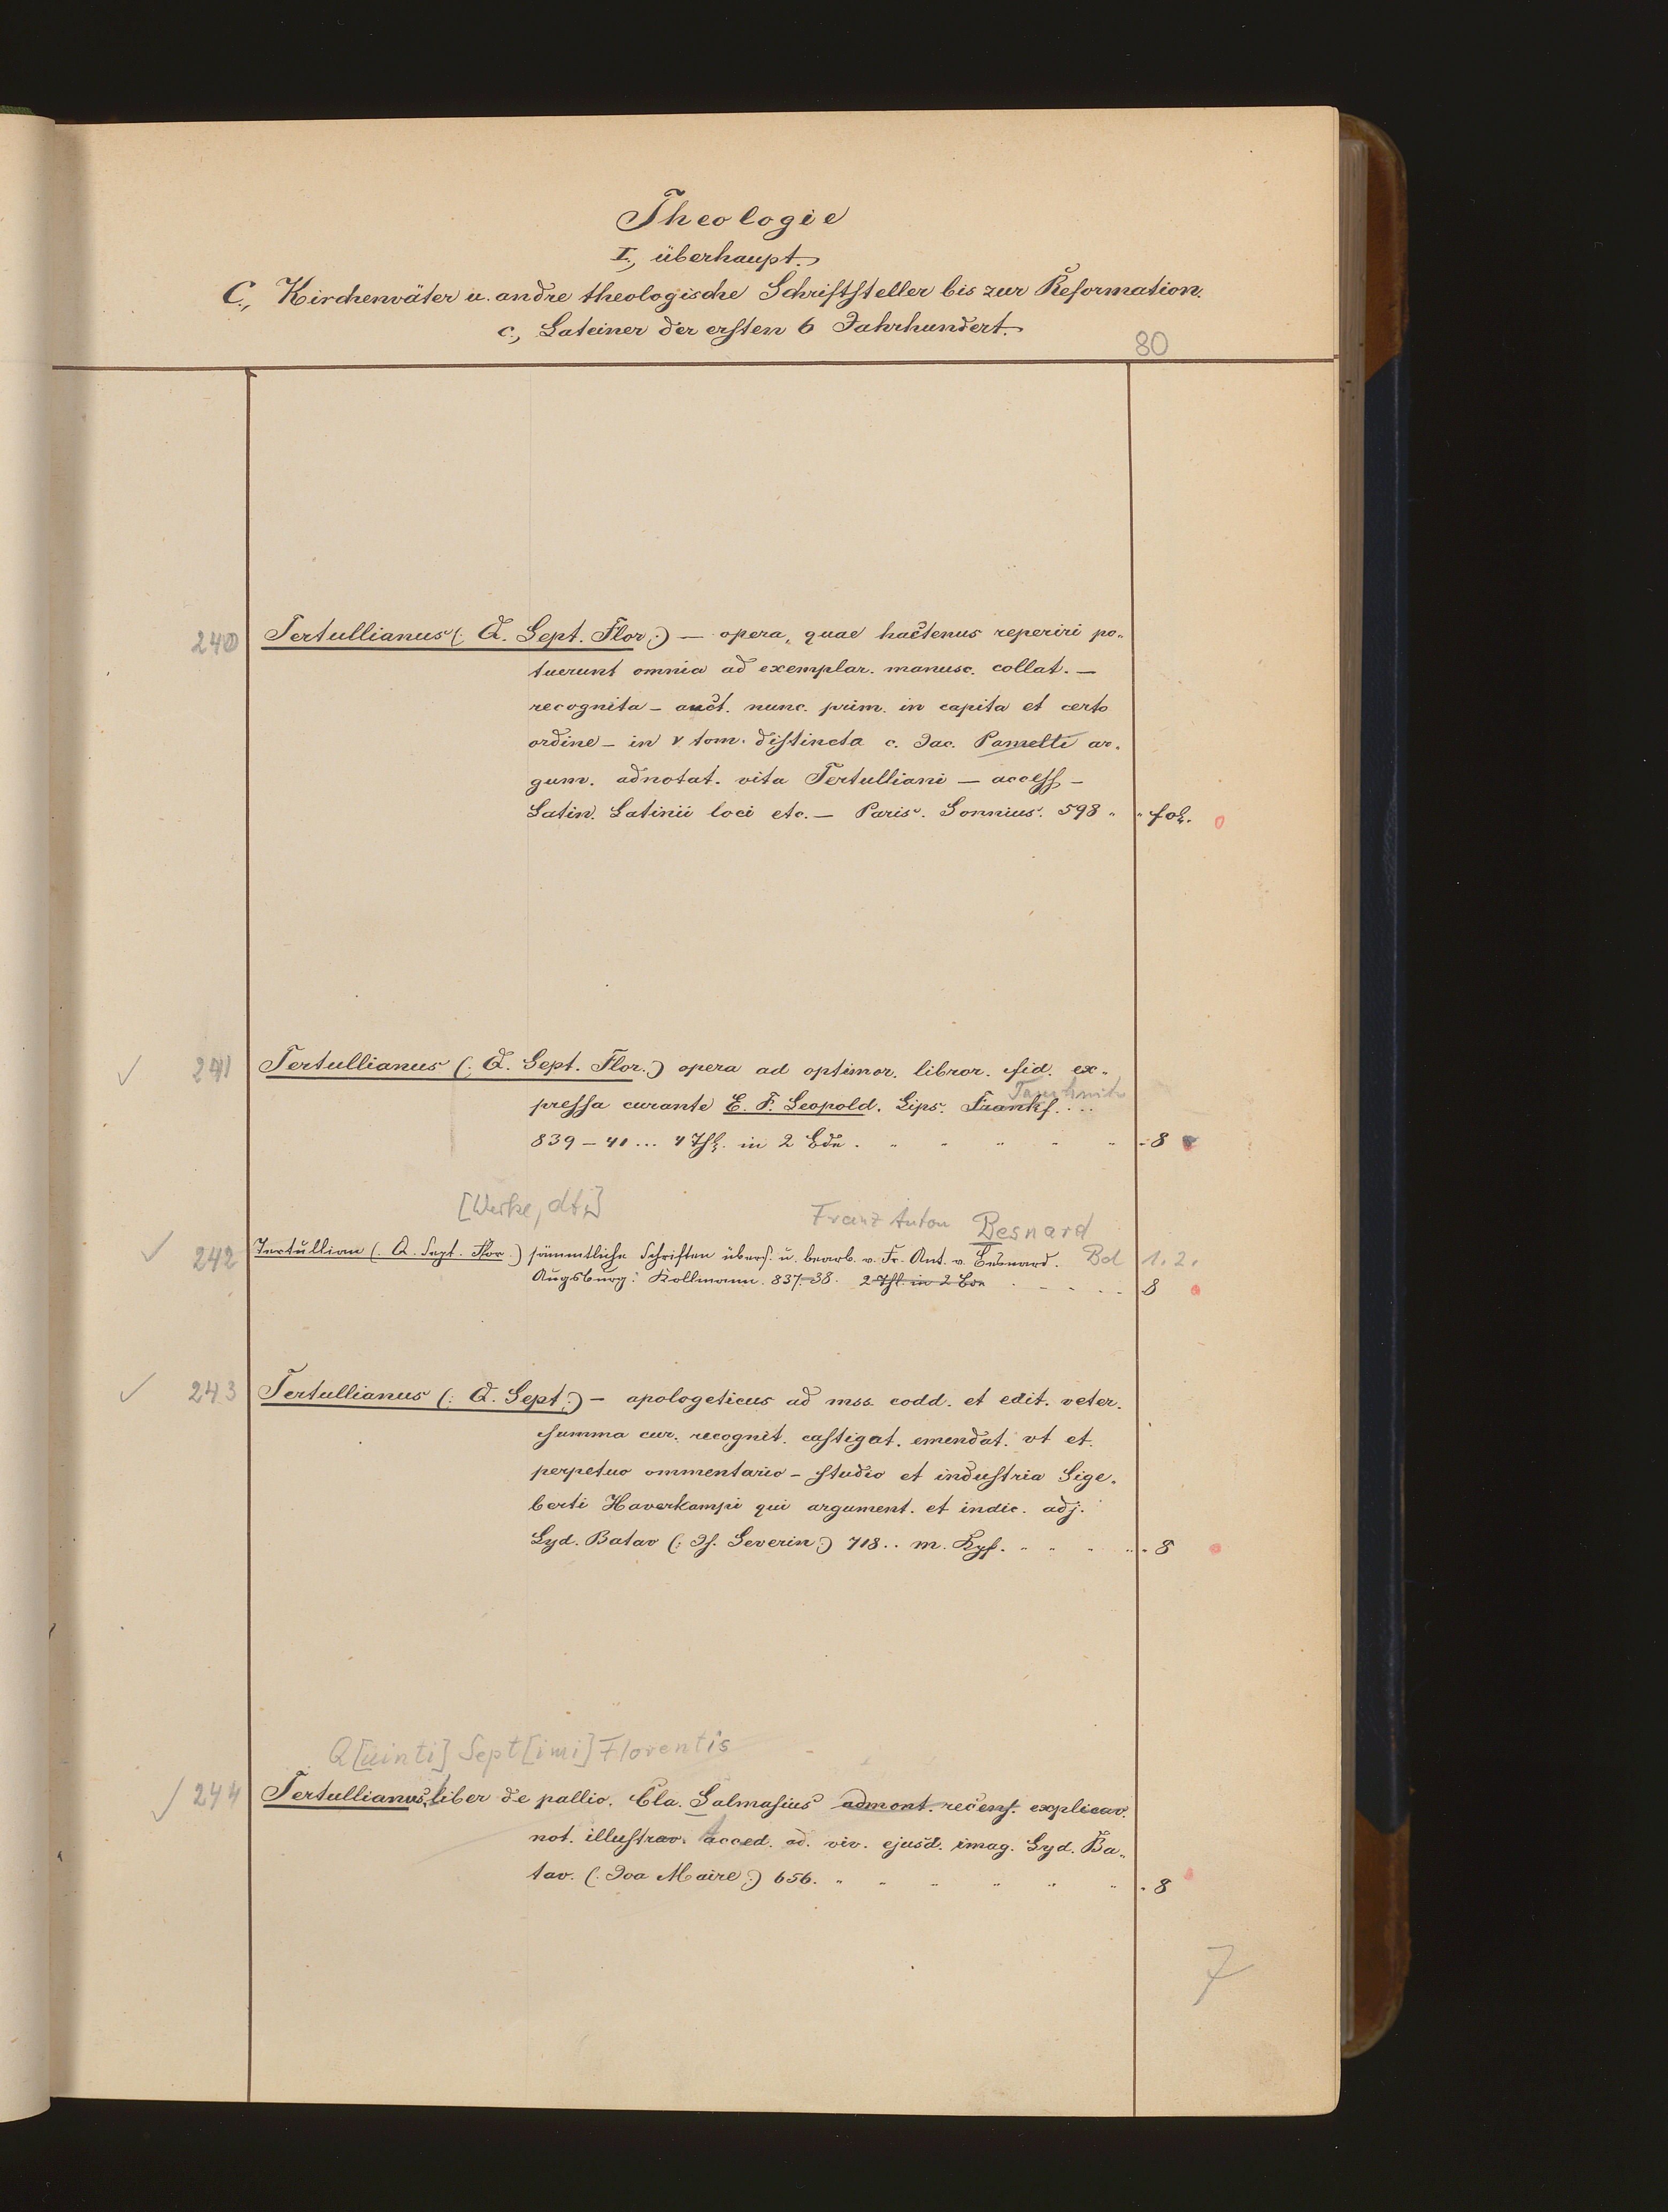 Theologie
I., überhaupt.
C., Kirchenväter u. andre theologische Schriftsteller bis zur Reformation.
c., Lateiner der ersten 6 Jahrhundert.
80
240 Tertullianus (: Q. Sept. Flor :) — opera, quae hactenus reperiri po-
tuerunt omnia ad exemplar. manusc. collat. —
recognita — auct. nunc. prim. in capita et certo
ordine — in V tom. distincta c. Jac. Pamelii ar-
gum. adnotat. vita Tertulliani — access —
Latin. Latinii loci etc. — Paris. Sonnius. 598 " " fol.
✓ 241 Tertullianus (: Q. Sept. Flor.) opera ad optimor. libror. fid. ex-
Tauchnitz
pressa curante E. F. Leopold. Lips. Frankf. ...
839 – 41 ... 4 Thl. in 2 Bdn. " " " " " 8
[Werke, dt.] Franz Anton Besnard
✓ 242 Tertullian (: Q. Sept. Flor.) sämmtliche Schriften übers. u. bearb. v. Fr. Ant. v. Besnard. Bd 1. 2.
Augsburg: Kollmann. 837–38. 2 Thl. in 2 Bdn . - . . - 8
✓ 243 Tertullianus (: Q. Sept :) — apologeticus ad mss. codd. et edit. veter.
summa cur. recognit. castigat. emendat. vt et
perpetuo ommentario – studio et industria Sige-
berti Haverkampi qui argument. et indic. adj.
Lyd. Batav (: Is. Severin :) 718 .. m. Kpf. " " " " 8
Q[uinti] Sept[imi] Florentis
✓ 244 Tertullianus, liber de pallio. Cla. Salmasius admont. recens. explicav.
not. illustrav. acced. ad. viv. ejusd. imag. Lyd. Ba-
tav. (: Joa Maire :) 656. " " " " " " 8
7